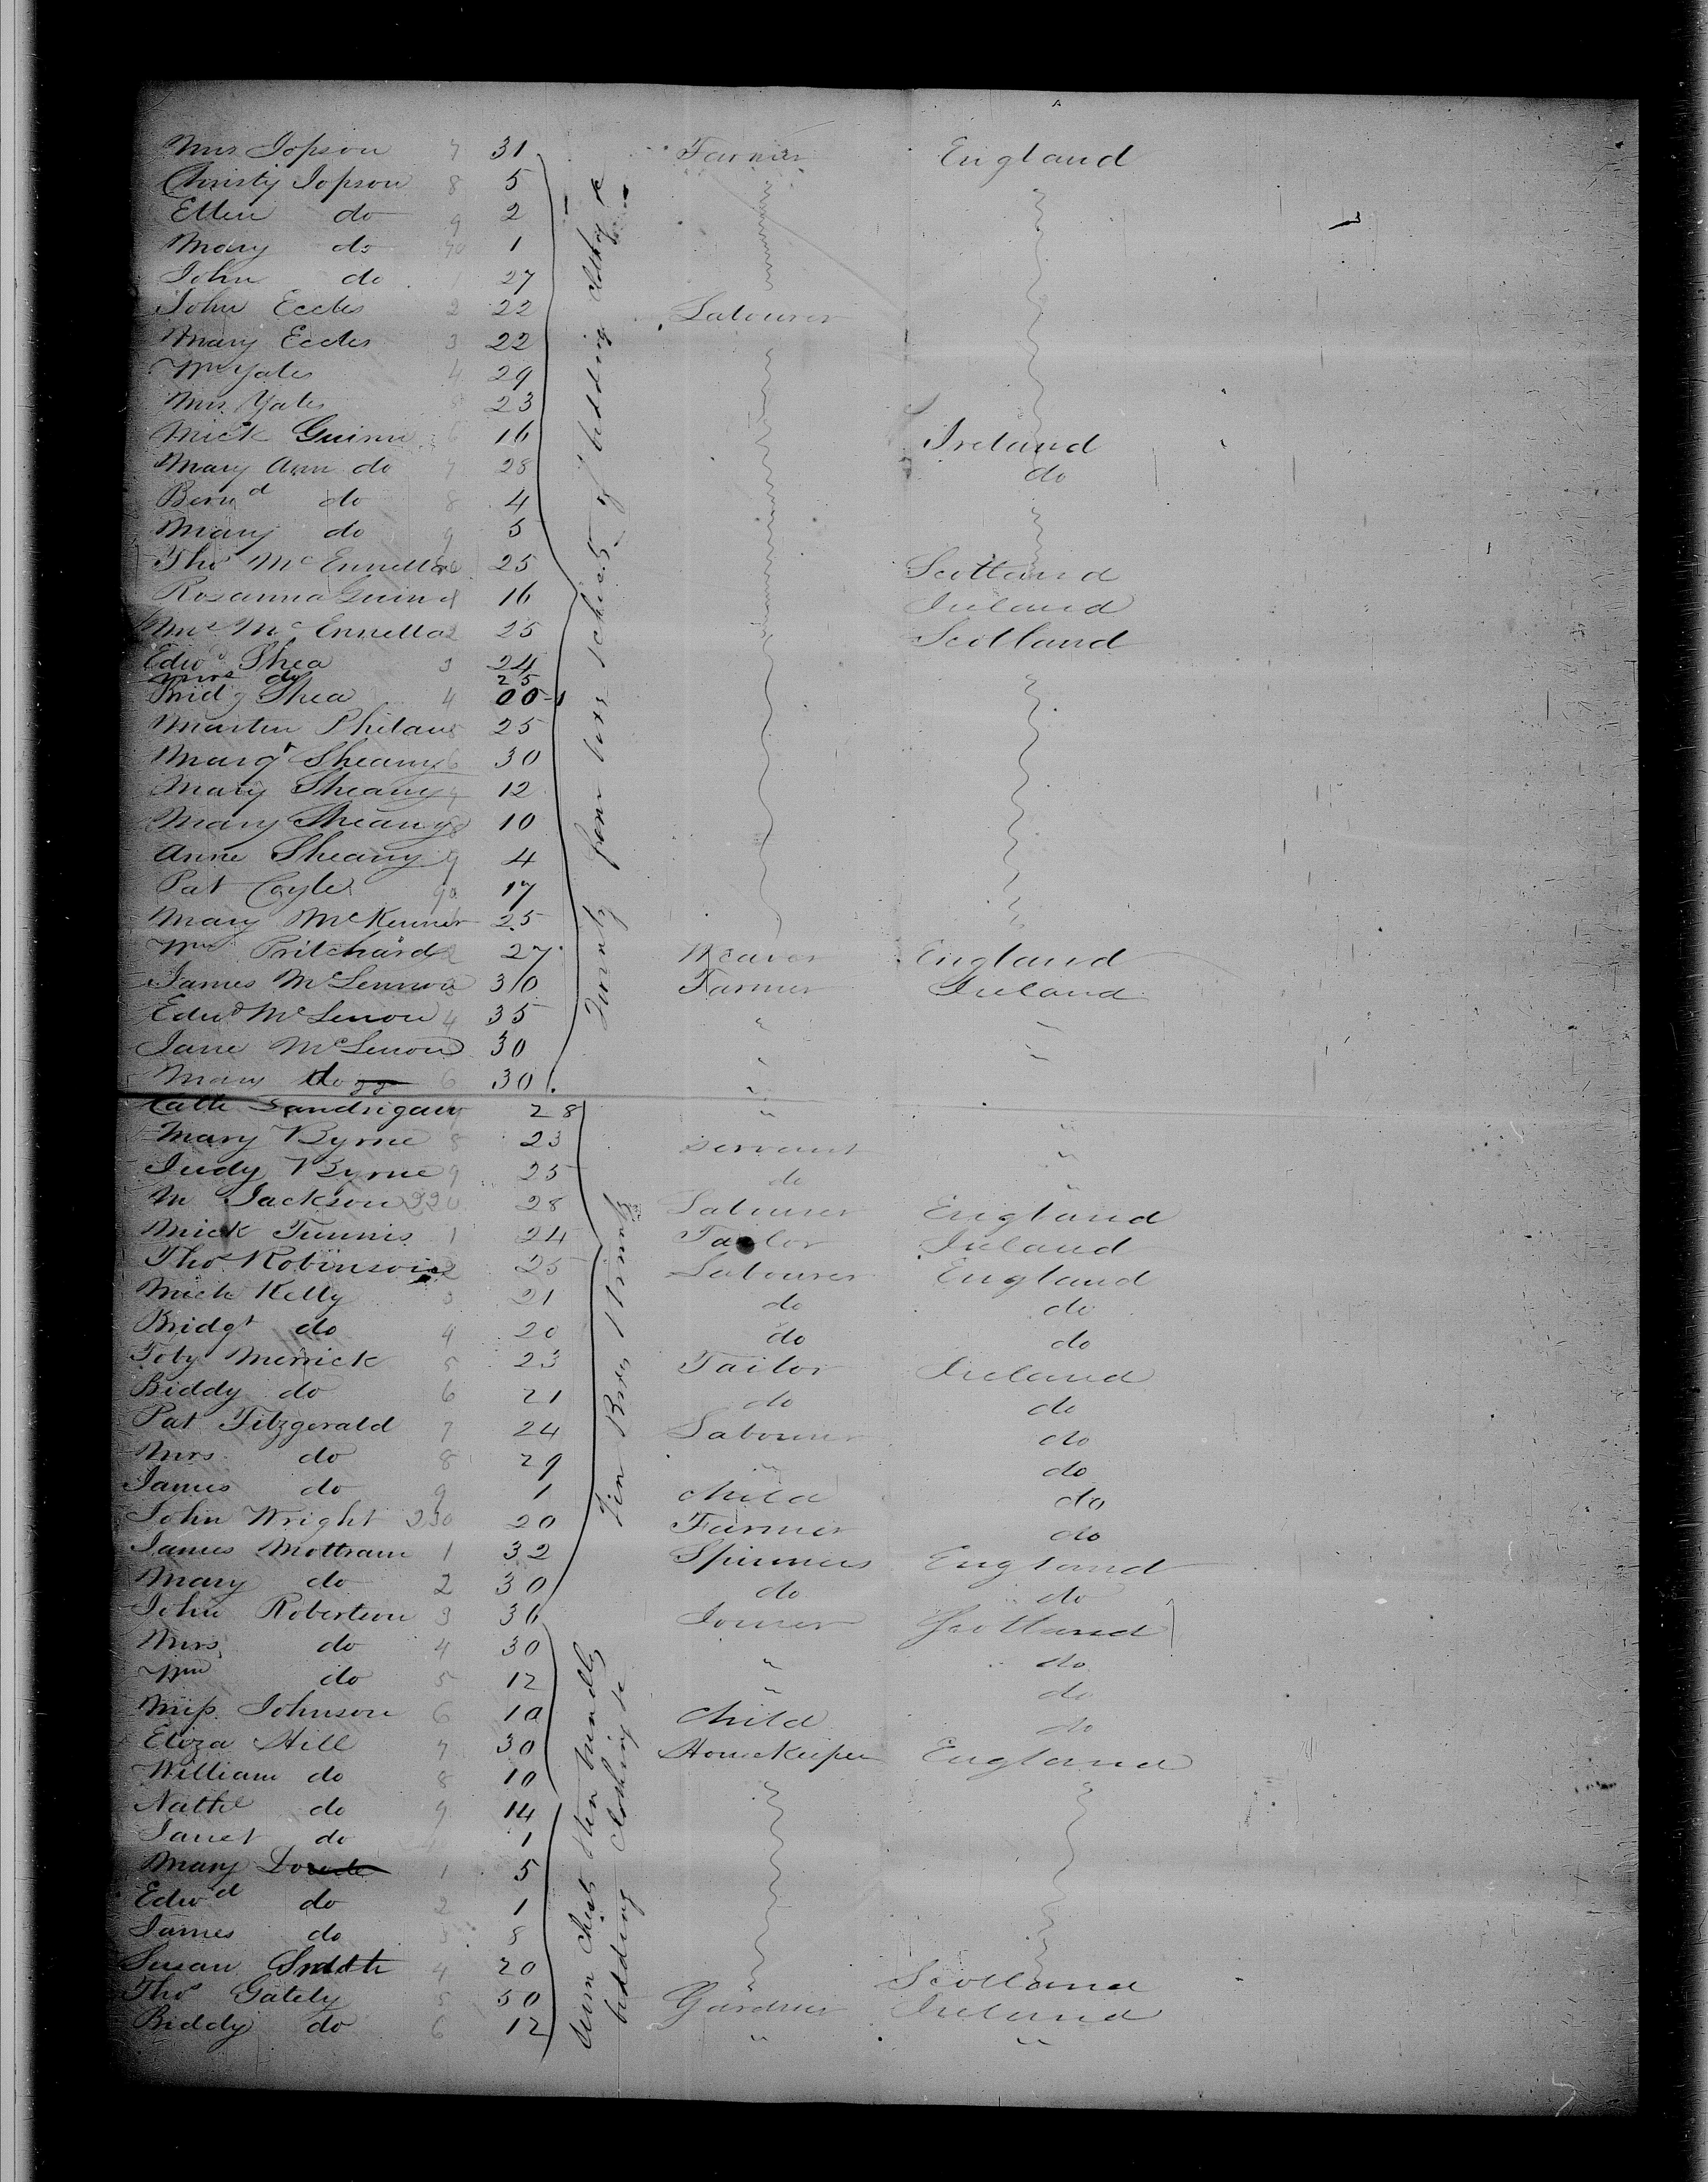 Mrs Jopson 7 31 Farmer England
Christy Jopson 8 5
Ellen do 9 2
Mary do 70 1
John do 1 27
John Eccles 2 22 Labourer
Mary Eccles 3 22
Wm Yates 4 29
Mrs Yates 5 23
Mick Guinn 6 16 Ireland
Mary Ann do 7 28 do
Bernd do 8 4
Mary do 9 5
Thos McEnnella 80 25 Scotland
Rosanna Guinn 1 16 Ireland
Mrs McEnnella 2 25 Scotland
Edwd Shea 3 24
Mrs do 25
Bridg Shea 4 00-1
Martin Philan 5 25
Margt Sheany 6 30
Mary Sheany 7 12
Mary Sheany 8 10
Anne Sheany 9 4
Pat Coyle 90 17
Mary McKenner 25
Wm Pritchard 2 27 Weaver England
James McLennon 3 30 Farmer Ireland
Edwd McLenon 4 35 " "
Jane McLenon 30 " "
Mary do 6 30 "
Cath Landrigan 7 28 " "
Mary Byrne 8 23 Servant "
Judy Byrne 9 25 do "
M Jackson 220 28 Labourer England
Mick Tunnis 1 24 Tailor Ireland
Thos Robinson 2 25 Labourer England
Mick Kelly 3 21 do do
Bridgt do 4 20 do do
Toby Merrick 5 23 Tailor Ireland
Biddy do 6 21 do do
Pat Fitzgerald 7 24 Labourer do
Mrs do 8 29 " do
James do 9 1 Child do
John Wright 230 20 Farmer do
James Mottram 1 32 Spinners England
Mary do 2 30 do do
John Robertson 3 36 Joiner Scotland
Mrs do 4 30 " do
Wm do 5 12 " do
Miss Johnson 6 10 Child do
Eliza Hill 7 30 Housekeeper England
William do 8 10
Nathl do 9 14
Janet do 1
Mary Do 1 5
Edwd do 2 1
James do 3 8
Susan Smith 4 20 Scotland
Thos Gately 5 50 Gardner Ireland
Biddy do 6 12 " "
Twenty four boxes of bedding clothing &c
Ten Boxes Trunks
bedding clothing &c